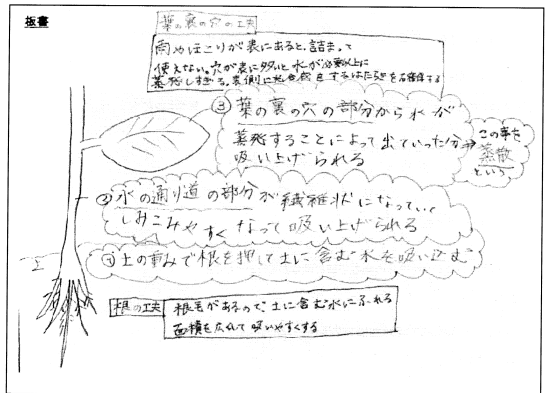 板書
葉の裏の穴の工夫
雨やほこりが表にあると、詰まって
使えない。穴が表に多いと水が必要以上に
蒸発しすぎる。表側に光合成をするはたらきを
③葉の裏の穴の部分から水が
蒸発することによって出ていった分
吸い上げられる
この事を
蒸散
という
②水の通り道の部分が繊維状になっていて
しみこみやすくなって吸い上げられる
①土の重みで根を押して土に含む水を吸い込む
根の工夫
根毛があるので、土に含む水にふれる
面積を広くして吸いやすくする